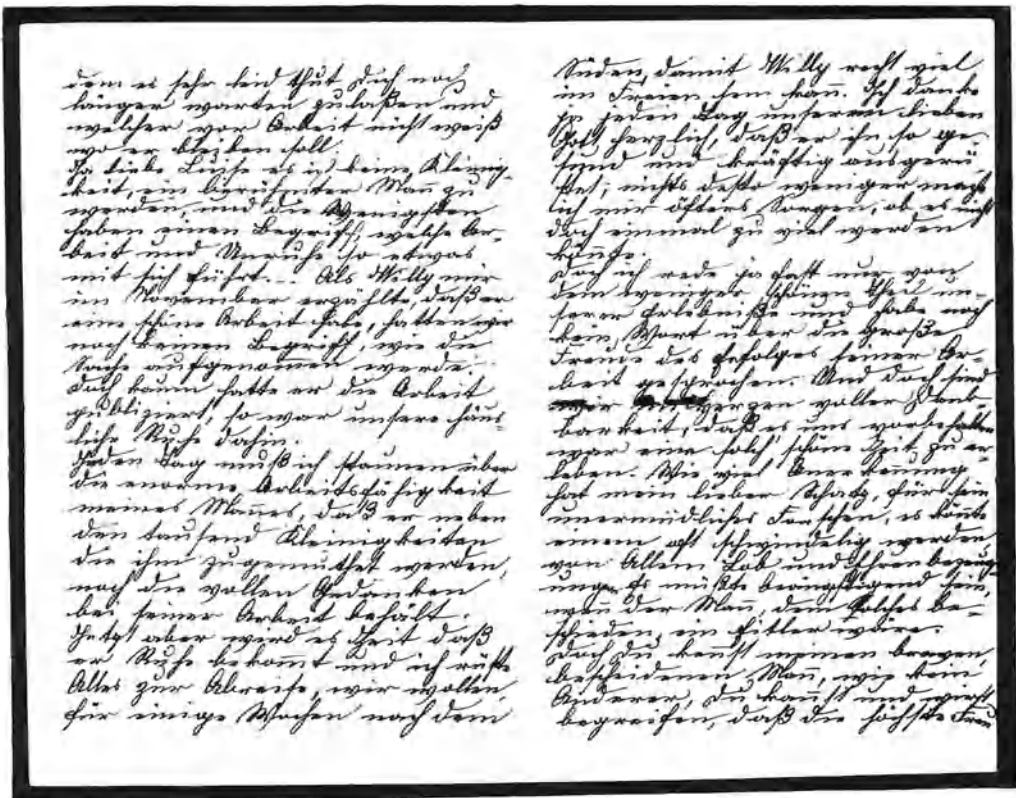 dem es sehr leid thut Dich noch
länger warten zu laßen und
welcher vor Arbeit nicht weiß
wo er bleiben soll.
Ja liebe Luise es ist keine Kleinig-
keit, ein berühmter Mañ zu
werden, und die Wenigsten
haben einen Begriff, welche Ar-
beit und Unruhe so etwas
mit sich führt. Als Willy mir
im November erzählte, daß er
eine schöne Arbeit habe, hatten wir
noch keinen Begriff, wie die
Sache aufgenommen werde.
Doch kaum hatte er die Arbeit
publiziert, so war unsere häus-
liche Ruhe dahin.
Jeden Tag muß ich staunen über
die enorme Arbeitsfähigkeit
meines Mañes, daß er neben
den tausend Kleinigkeiten
die ihm zugemuthet werden,
noch die vollen Gedanken
bei seiner Arbeit behält.
Jetzt aber wird es Zeit daß
er Ruhe bekom̄t und ich rüste
Alles zur Abreise, wir wollen
für einige Wochen nach dem
Süden, damit Willy recht viel
im Freien sein kañ. Ich danke
ja jeden Tag unserem lieben
Gott herzlich, daß er ihn so ge-
sund und kräftig ausgerü-
stet; nichts desto weniger mach
ich mir öfters Sorgen, ob es nicht
doch einmal zu viel werden
köñte.
Doch ich rede ja fast nur von
dem weniger schönen Theil un-
serer Erlebniße und habe noch
kein Wort über die große
Freude des Erfolges seiner Ar-
beit gesprochen. Und doch sind
wir im Herzen voller Dank-
barkeit, daß es uns vorbehalten
war eine solch' schöne Zeit zu er-
leben. Wie viel Anerkeñung
hat mein lieber Schatz, für sein
unermüdliches Forschen, es köñte
einem oft schwindelig werden
von Allem Lob und Ehrenbezeug-
ungen. Es müßte beängstigend sein,
weñ der Mañ, dem solches be-
schieden, ein Eitler wäre.
Doch Du keñst meinen braven,
bescheidenen Mañ, wie kein
Anderer, Du kañst und wirst
begreifen, daß die höchste Freu